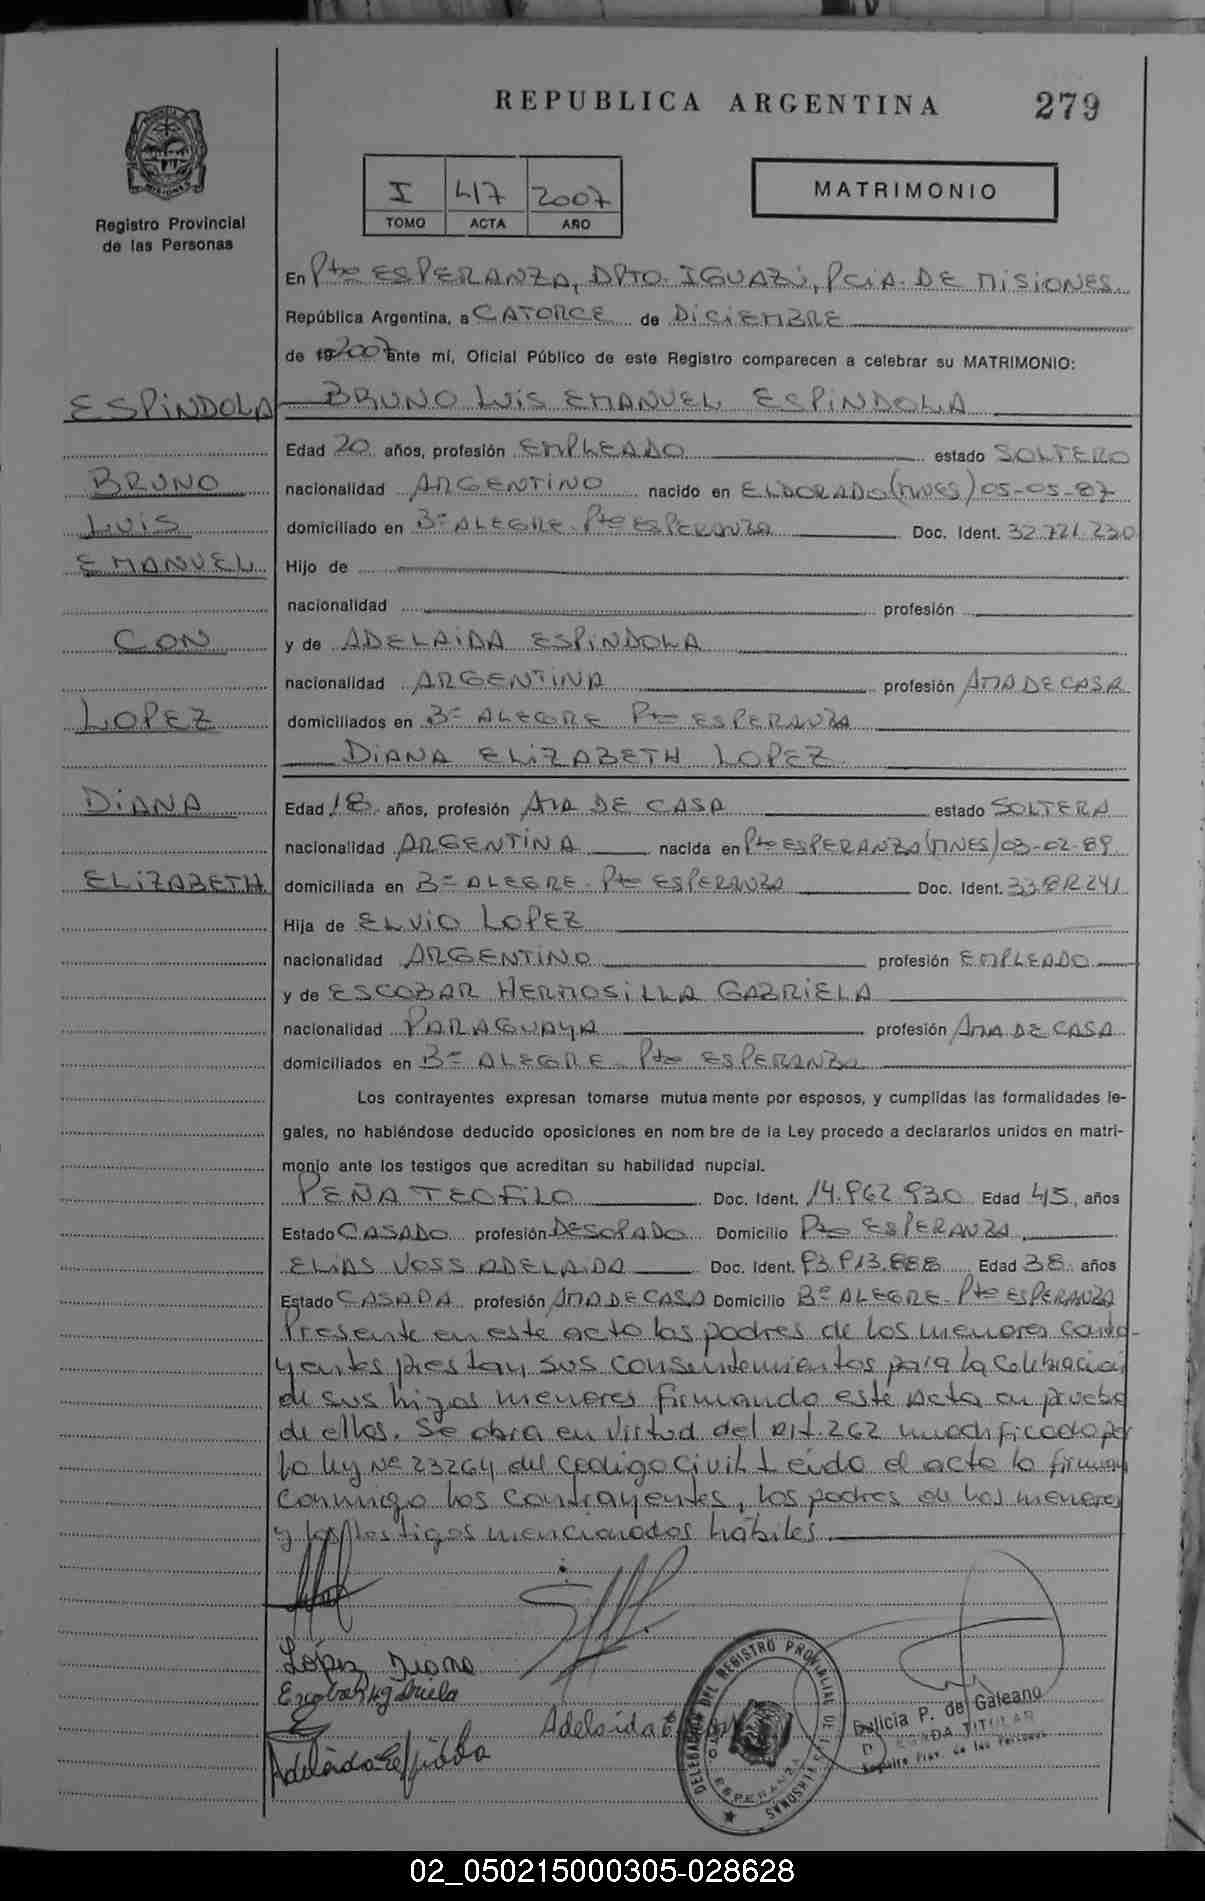 REPUBLICA ARGENTINA
279
MISIONES
Registro Provincial
de las Personas
I 417 2007
TOMO ACTA AÑO
MATRIMONIO
En Pto ESPERANZA, DPTO. IGUAZÚ, PCIA. DE MISIONES
República Argentina, a CATORCE de DICIEMBRE
de 19 2007 ante mí, Oficial Público de este Registro comparecen a celebrar su MATRIMONIO:
ESPINDOLA
BRUNO LUIS EMANUEL ESPINDOLA
Edad 20 años, profesión EMPLEADO estado SOLTERO
BRUNO
nacionalidad ARGENTINO nacido en ELDORADO (MNES) 05-05-87
LUIS
domiciliado en Bº ALEGRE. Pto ESPERANZA Doc. Ident. 32.721.230
EMANUEL
Hijo de
nacionalidad profesión
CON
y de ADELAIDA ESPINDOLA
nacionalidad ARGENTINA profesión AMA DE CASA
LOPEZ
domiciliados en Bº ALEGRE Pto ESPERANZA
DIANA ELIZABETH LOPEZ
DIANA
Edad 18 años, profesión AMA DE CASA estado SOLTERA
nacionalidad ARGENTINA nacida en Pto ESPERANZA (MNES) 03-02-89
ELIZABETH
domiciliada en Bº ALEGRE. Pto ESPERANZA Doc. Ident. 33.812.241
Hija de ELVIO LOPEZ
nacionalidad ARGENTINO profesión EMPLEADO
y de ESCOBAR HERMOSILLA GABRIELA
nacionalidad PARAGUAYA profesión AMA DE CASA
domiciliados en Bº ALEGRE. Pto ESPERANZA
Los contrayentes expresan tomarse mutua mente por esposos, y cumplidas las formalidades le-
gales, no habiéndose deducido oposiciones en nom bre de la Ley procedo a declararlos unidos en matri-
monio ante los testigos que acreditan su habilidad nupcial.
PEÑA TEOFILO Doc. Ident. 14.962.930 Edad 45, años
Estado CASADO profesión DESOPADO Domicilio Pto ESPERANZA
ELIAS VOSS ADELAIDA Doc. Ident. 93.913.888 Edad 38 años
Estado CASADA profesión AMA DE CASA Domicilio Bº ALEGRE. Pto ESPERANZA
Presente en este acto los padres de los menores contra-
yentes prestan sus consentemientos para la celebracion
de sus hijos menores firmando este acta en prueba
de ellos. Se obra en virtud del Art. 262 modificado por
la ley Nº 23264 del codigo Civil. Leido el acta la firman
conmigo los contrayentes, los padres de los menores
y los testigos mencionados hábiles
López Diana
Escobar Hg Briela
Adelaida Espindola
Adelaida E.
DELEGACION DEL REGISTRO PROVINCIAL DE LAS PERSONAS
ESPERANZA
P. de Galeano
TITULAR
Registro Prov. de las Personas
02_050215000305-028628